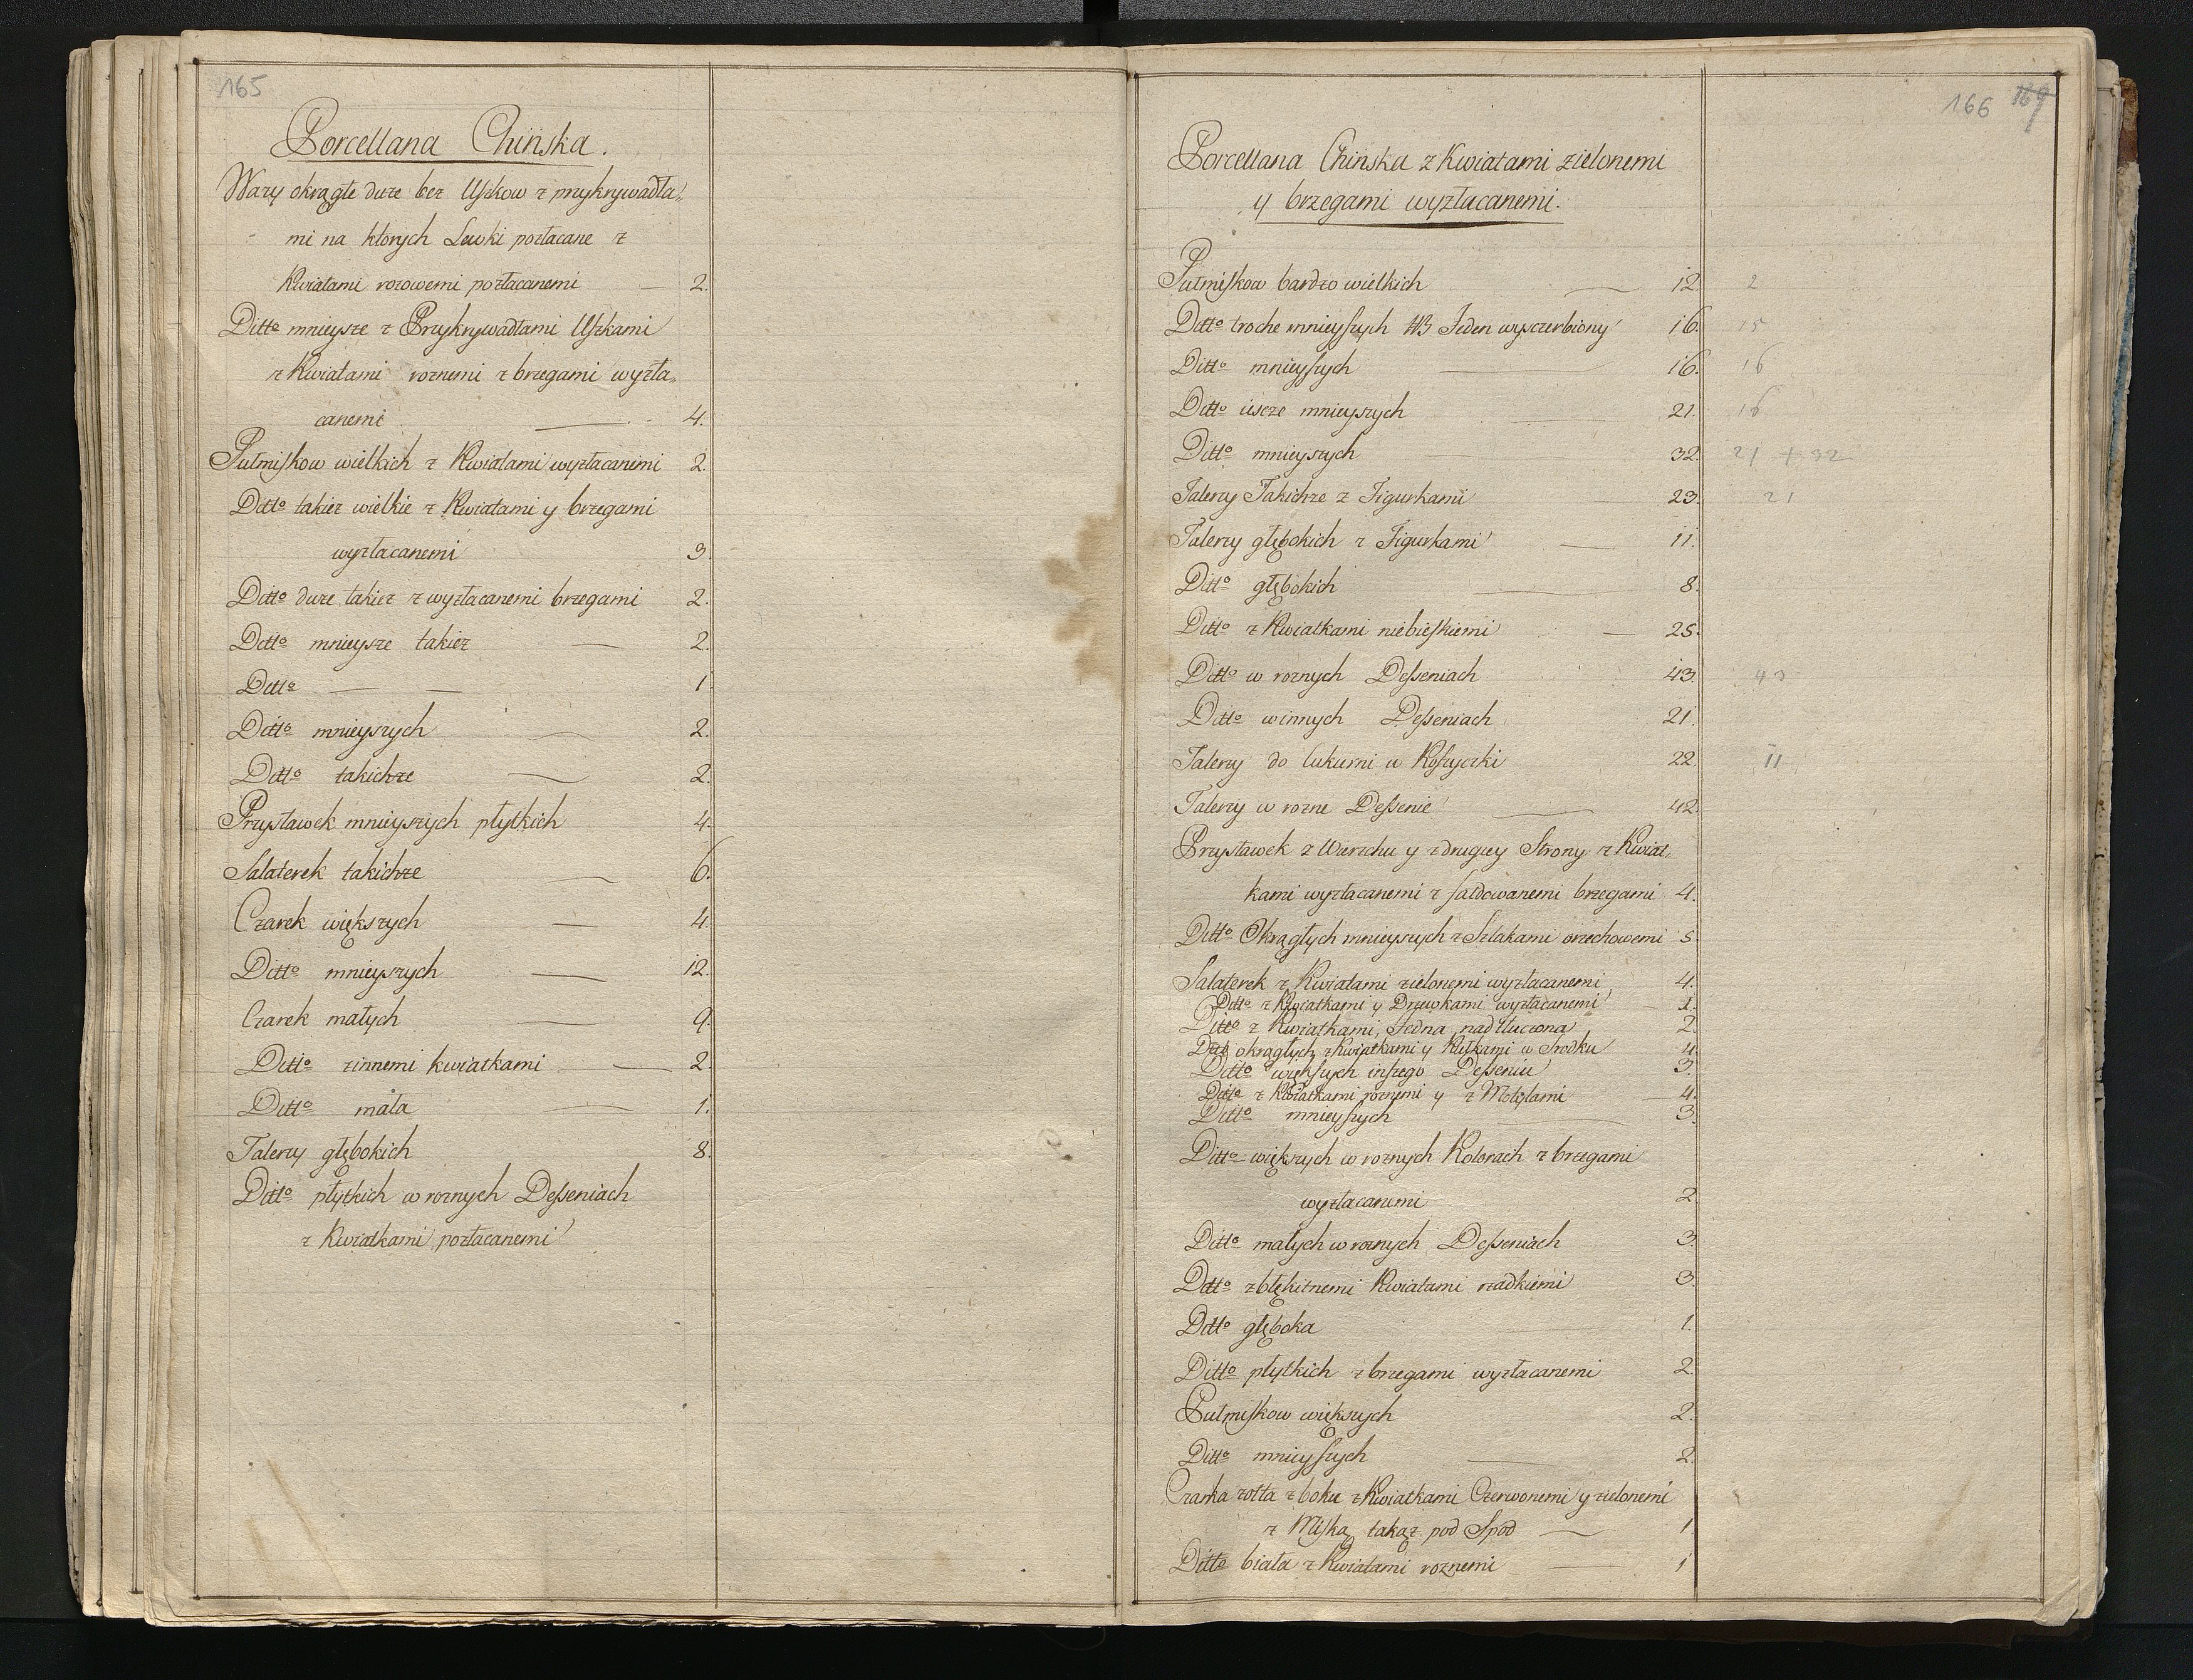 165
Porcellana Chińska.
Wazy okrągłe duże bez Uszkow z przykrywadła„
mi na których Lewki pozłacane z
Kwiatami rozowemi pozłacanemi — 2.
Ditto mnieysze z Przykrywadłami Uszkami
z Kwiatami roznemi z brzegami wyzła„
canemi — 4.
Pułmiskow wielkich z Kwiatami wyzłacanemi 2.
Ditto takiez wielkie z Kwiatami y brzegami
wyzłacanemi 3
Ditto duze takiez z wyzłacanemi brzegami 2.
Ditto mnieysze takiez — 2.
Ditto — — 1
Ditto mnieyszych — 2.
Ditto takichze — 2.
Przystawek mnieyszych płytkich 4.
Salaterek takichze — 6.
Czarek większych — 4.
Ditto mnieyszych — 12.
Czarek małych — 9.
Ditto zinnemi kwiatkami — 2.
Ditto mała — 1.
Talerzy głębokich 8.
Ditto płytkich w roznych Desseniach
z Kwiatkami pozłacanemi
166 169
Porcellana Chińska z Kwiatami zielonemi
y brzegami wyzłacanemi.
Pułmiskow bardzo wielkich — 12. 2
Ditto troche mnieyszych NB Jeden wyszczerbiony 16. 15
Ditto mnieyszych — 16. 16
Ditto ieszcze mnieyszych — 21. 16
Ditto mnieyszych — 32. 21 + 32
Talerzy Takichze z Figurkami 23. 21
Talerzy głębokich z Figurkami — 11.
Ditto głębokich — 8.
Ditto z Kwiatkami niebieskiemi — 25.
Ditto w roznych Desseniach 43. 43
Ditto winnych Desseniach 21.
Talerzy do Cukurni w Koszyczki 22. 11
Talerzy w rozne Dessenie — 42.
Przystawek z Wierzchu y z drugiey Strony z Kwiat„
kami wyzłacanemi z fałdowanemi brzegami 4.
Ditto Okrągłych mnieyszych z Szlakami orzechowemi 5.
Salaterek z Kwiatami zielonemi wyzłacanemi 4.
Ditto z Kwiatkami y Drzewkami wyzłacanemi — 1.
Ditto z Kwiatkami, Jedna nadtłuczona 2.
Ditto okrągłych z Kwiatkami y Kułkami w Srodku 4.
Ditto większych inszego Desseniu 3.
Ditto z Kwiatkami roznemi y z Motylami — 4.
Ditto mnieyszych — 3.
Ditto większych w roznych Kolorach z brzegami
wyzłacanemi 2
Ditto małych w roznych Desseniach 3.
Ditto z błękitnemi Kwiatami rzadkiemi 3.
Ditto głęboka — 1.
Ditto płytkich z brzegami wyzłacanemi 2.
Pułmiskow większych 2.
Ditto mnieyszych — 2.
Czarka zołta z boku z Kwiatkami Czerwonemi y zielonemi
z Miską takąz pod Spod — 1.
Ditto biała z Kwiatami roznemi — 1